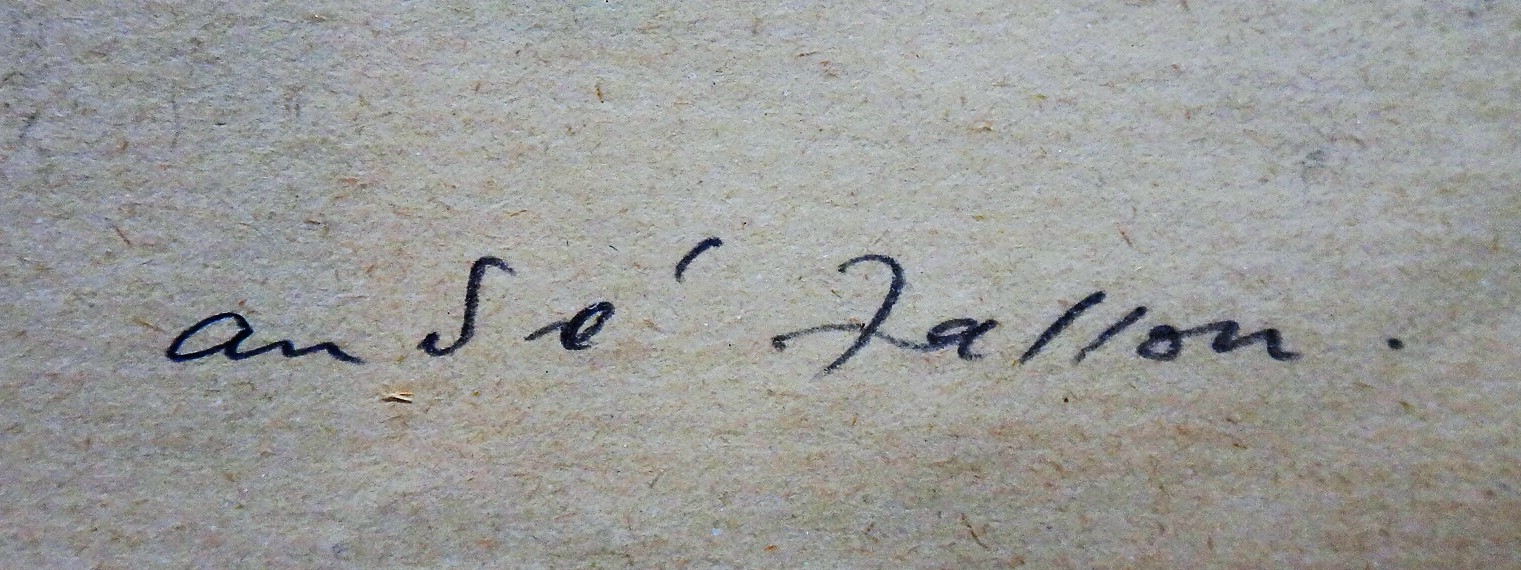 andré Fallon.